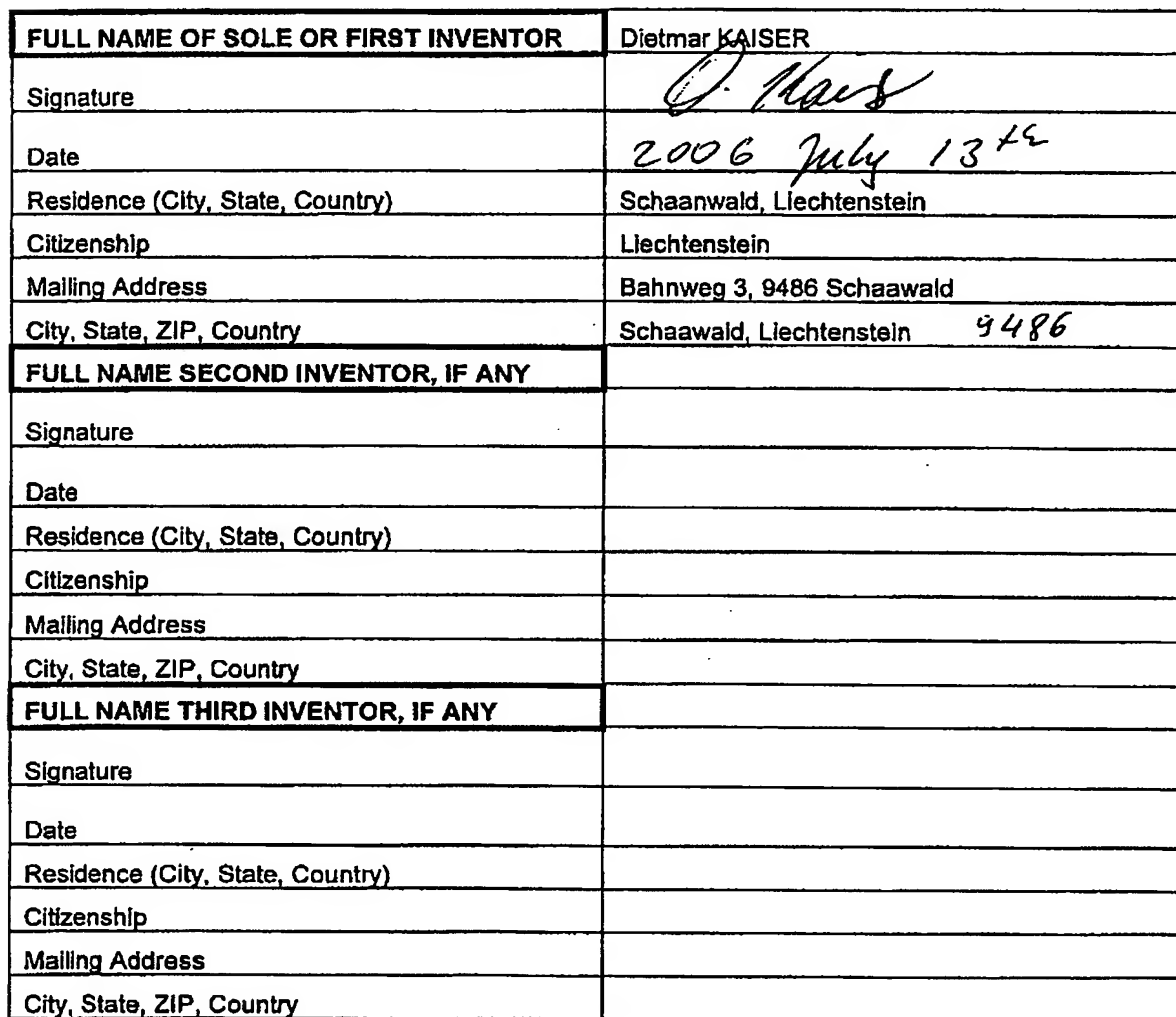 FULL NAME OF SOLE OR FIRST INVENTOR Dietmar KAISER
Signature D. Kais
Date 2006 July 13th
Residence (City, State, Country) Schaanwald, Liechtenstein
Citizenship Liechtenstein
Mailing Address Bahnweg 3, 9486 Schaawald
City, State, ZIP, Country Schaawald, Liechtenstein 9486
FULL NAME SECOND INVENTOR, IF ANY
Signature
Date
Residence (City, State, Country)
Citizenship
Mailing Address
City, State, ZIP, Country
FULL NAME THIRD INVENTOR, IF ANY
Signature
Date
Residence (City, State, Country)
Citizenship
Mailing Address
City, State, ZIP, Country